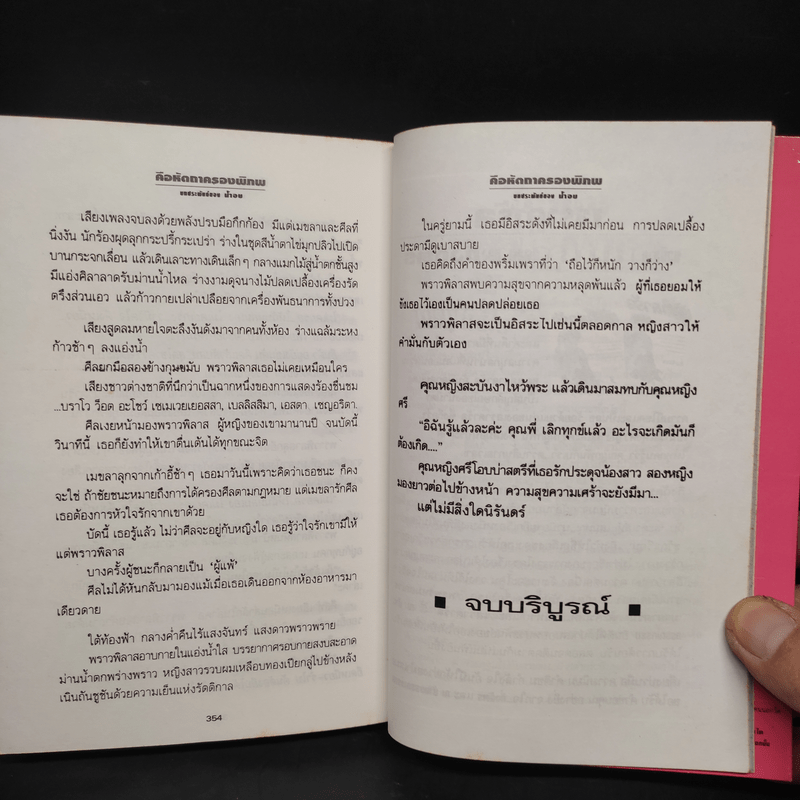 คือหัตถาครองพิภพ
บทประพันธ์ของ น้ำอบ
เสียงเพลงจบลงด้วยพลังปรบมือกึกก้อง มีแต่เมขลาและศีลที่
นิ่งงัน นักร้องผุดลุกกระปรี้กระเปร่า ร่างในชุดสีน้ำตาไข่มุกปลิวไปเปิด
บานกระจกเลื่อน แล้วเดินเลาะทางเดินเล็กๆ กลางแมกไม้สู่น้ำตกชั้นสูง
มีแอ่งศิลาลาดรับม่านน้ำไหล ร่างงามดุจนางไม้ปลดเปลื้องเครื่องรัด
ตรึงส่วนเอว แล้วก้าวกายเปล่าเปลือยจากเครื่องพันธนาการทั้งปวง
เสียงสูดลมหายใจตะลึงงันดังมาจากคนทั้งห้อง ร่างแฉล้มระหง
ก้าวช้าๆ ลงแอ่งน้ำ
ศีลยกมือสองข้างกุมขมับ พราวพิลาสเธอไม่เคยเหมือนใคร
เสียงชาวต่างชาติที่นึกว่าเป็นฉากหนึ่งของการแสดงร้องชื่นชม
...บราโว ว็อต อะโชว์ เซเมเวยเยอสสา, เบลลิสสิมา, เอสตา เซญอริตา.
ศีลเงยหน้ามองพราวพิลาส ผู้หญิงของเขามานานปี จนบัดนี้
วินาทีนี้ เธอก็ยังทำให้เขาตื่นเต้นได้ทุกขณะจิต
เมขลาลุกจากเก้าอี้ช้าๆ เธอมาวันนี้เพราะคิดว่าเธอชนะ ก็คง
จะใช่ ถ้าชัยชนะหมายถึงการได้ครองศีลตามกฎหมาย แต่เมขลารักศีล
เธอต้องการหัวใจรักจากเขาด้วย
บัดนี้ เธอรู้แล้ว ไม่ว่าศีลจะอยู่กับหญิงใด เธอรู้ว่าใจรักเขามีให้
แต่พราวพิลาส
บางครั้งผู้ชนะก็กลายเป็น ‘ผู้แพ้’
ศีลไม่ได้หันกลับมามองแม้เมื่อเธอเดินออกจากห้องอาหารมา
เดียวดาย
ใต้ท้องฟ้า กลางค่ำคืนไร้แสงจันทร์ แสงดาวพราวพราย
พราวพิลาสอาบกายในแอ่งน้ำใส บรรยากาศรอบกายสงบสะอาด
ม่านน้ำตกพร่างพราว หญิงสาวรวบผมเหลือบทองเปียกลู่ไปข้างหลัง
เนินถันชูชันด้วยความเย็นแห่งรัตติกาล
354
คือหัตถาครองพิภพ
บทประพันธ์ของ น้ำอบ
ในครู่ยามนี้ เธอมีอิสระดังที่ไม่เคยมีมาก่อน การปลดเปลื้อง
ประดามีดูเบาสบาย
เธอคิดถึงคำของพริ้มเพราที่ว่า ‘ถือไว้ก็หนัก วางก็ว่าง’
พราวพิลาสพบความสุขจากความหลุดพ้นแล้ว ผู้ที่เธอยอมให้
ขังเธอไว้เองเป็นคนปลดปล่อยเธอ
พราวพิลาสจะเป็นอิสระไปเช่นนี้ตลอดกาล หญิงสาวให้
คำมั่นกับตัวเอง
คุณหญิงสะบันงาไหว้พระ แล้วเดินมาสมทบกับคุณหญิง
ศรี
“อิฉันรู้แล้วละค่ะ คุณพี่ เลิกทุกข์แล้ว อะไรจะเกิดมันก็
ต้องเกิด....”
คุณหญิงศรีโอบบ่าสตรีที่เธอรักประดุจน้องสาว สองหญิง
มองยาวต่อไปข้างหน้า ความสุขความเศร้าจะยังมีมา...
แต่ไม่มีสิ่งใดนิรันดร์
■ จบบริบูรณ์ ■